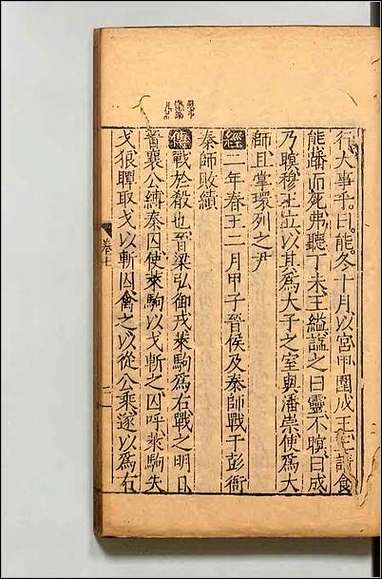 行大事乎曰能冬十月以宮甲圍成王王請食
熊蹯而死弗聽丁未王縊謚之曰靈不瞑曰成
乃瞑穆王立以其為大子之室與潘崇使為大
師且掌環列之尹
經二年春王二月甲子晉侯及秦師戰于彭衙
秦師敗績
傳戰於殽也晉梁弘御戎萊駒為右戰之明日
晉襄公縛秦囚使萊駒以戈斬之囚呼萊駒失
戈狼瞫取戈以斬囚禽之以從公乘遂以為右